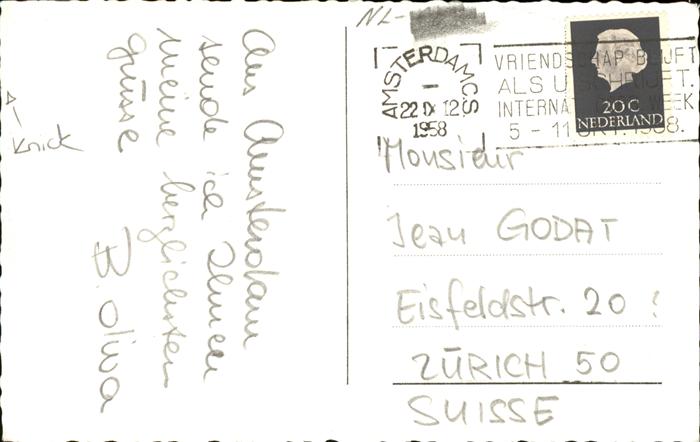 Aus Amsterdam
sende ich Ihnen
meine herzlichsten
Grüsse
B. Oliva
Knick
NL-
AMSTERDAM CS
22 IX 12
1958
VRIENDSCHAP BLIJFT
ALS U SCHRIJFT.
INTERNAT. WEEK
5 - 11 OKT. 1958.
20 C
NEDERLAND
Monsieur
Jean GODAT
Eisfeldstr. 20
ZÜRICH 50
SUISSE